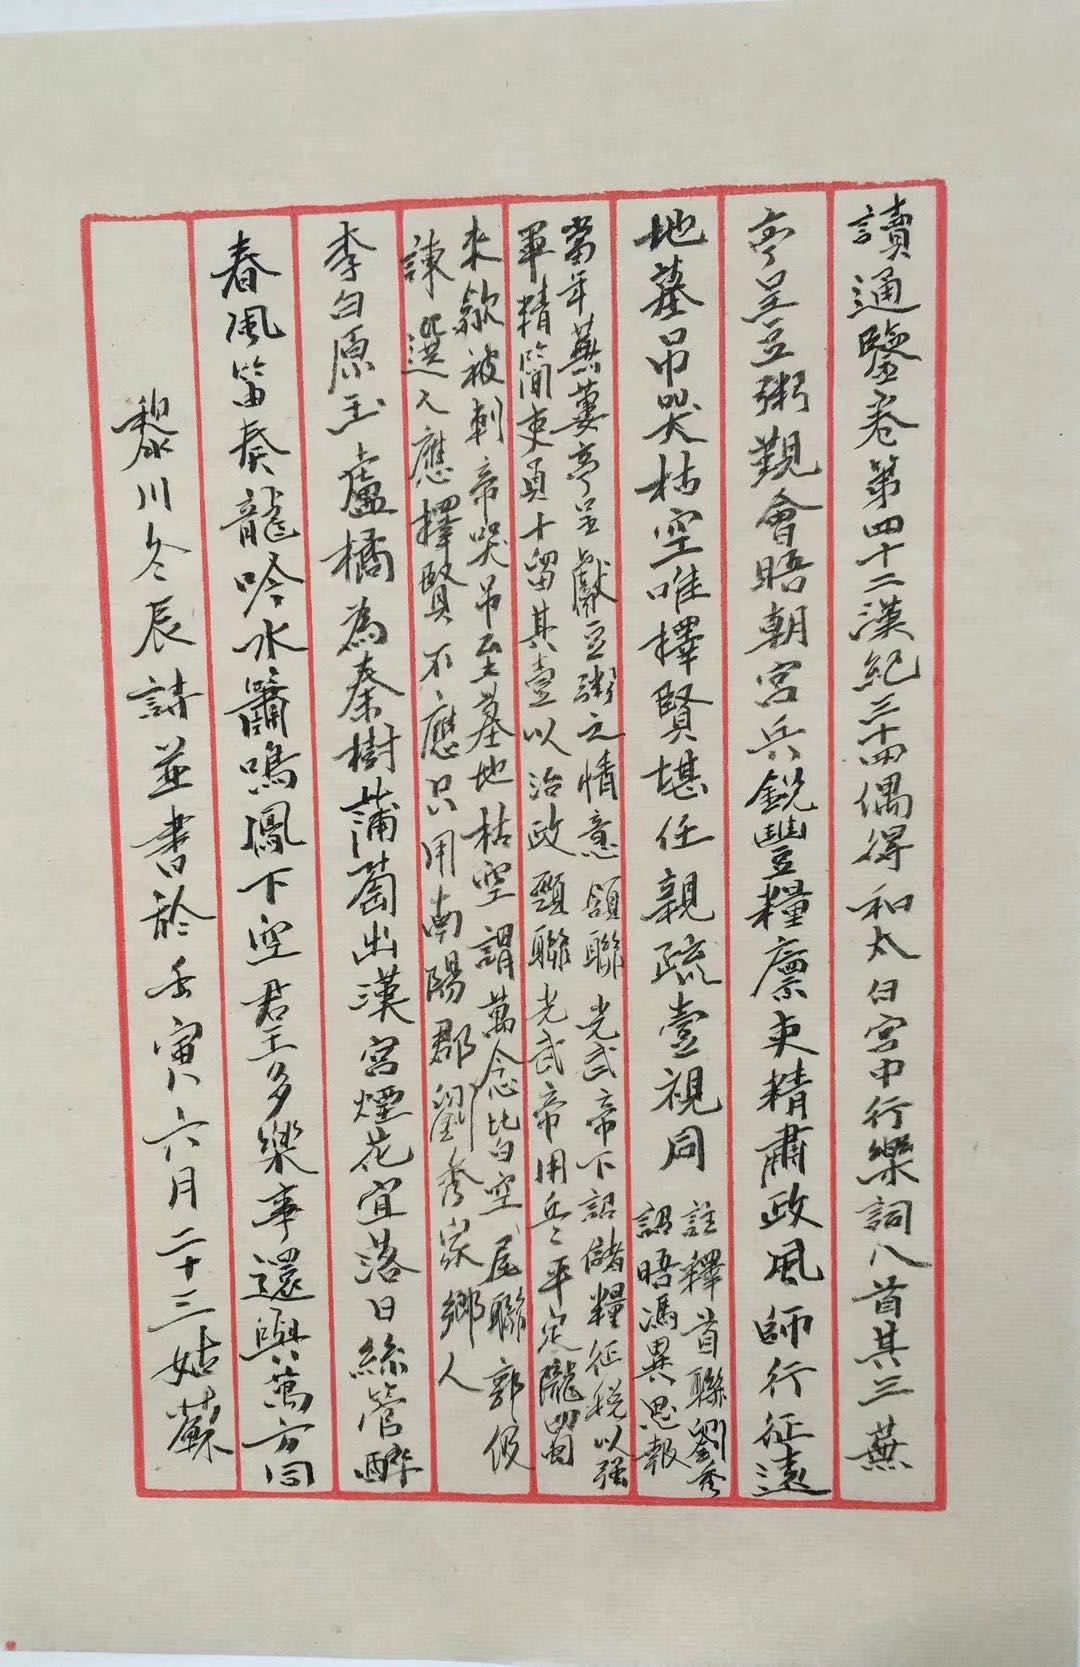 讀通鑒卷第四十二漢紀三十四偶得和太白宮中行樂詞八首其三蕪
亭呈豆粥覲會晤朝宮兵銳豐糧廪吏精肅政風師行征遠
地墓吊哭枯空唯擇賢堪任親疏壹視同
註釋首聯劉秀
詔晤馮異思報
當年蕪蔞亭呈獻豆粥之情意頷聯光武帝下詔儲糧征税以强
軍精簡吏員十留其壹以治政頸聯光武帝用兵平定隴蜀
來歙被刺帝哭吊至墓地枯空謂萬念皆空尾聯郭伋
諫選人應擇賢不應只用南陽郡劉秀家鄉人
李白原玉盧橘為秦樹蒲萄出漢宮煙花宜落日絲管醉
春風笛奏龍吟水簫鳴鳳下空君王多樂事還與萬方同
黎川冬辰詩並書於壬寅六月二十三姑蘇